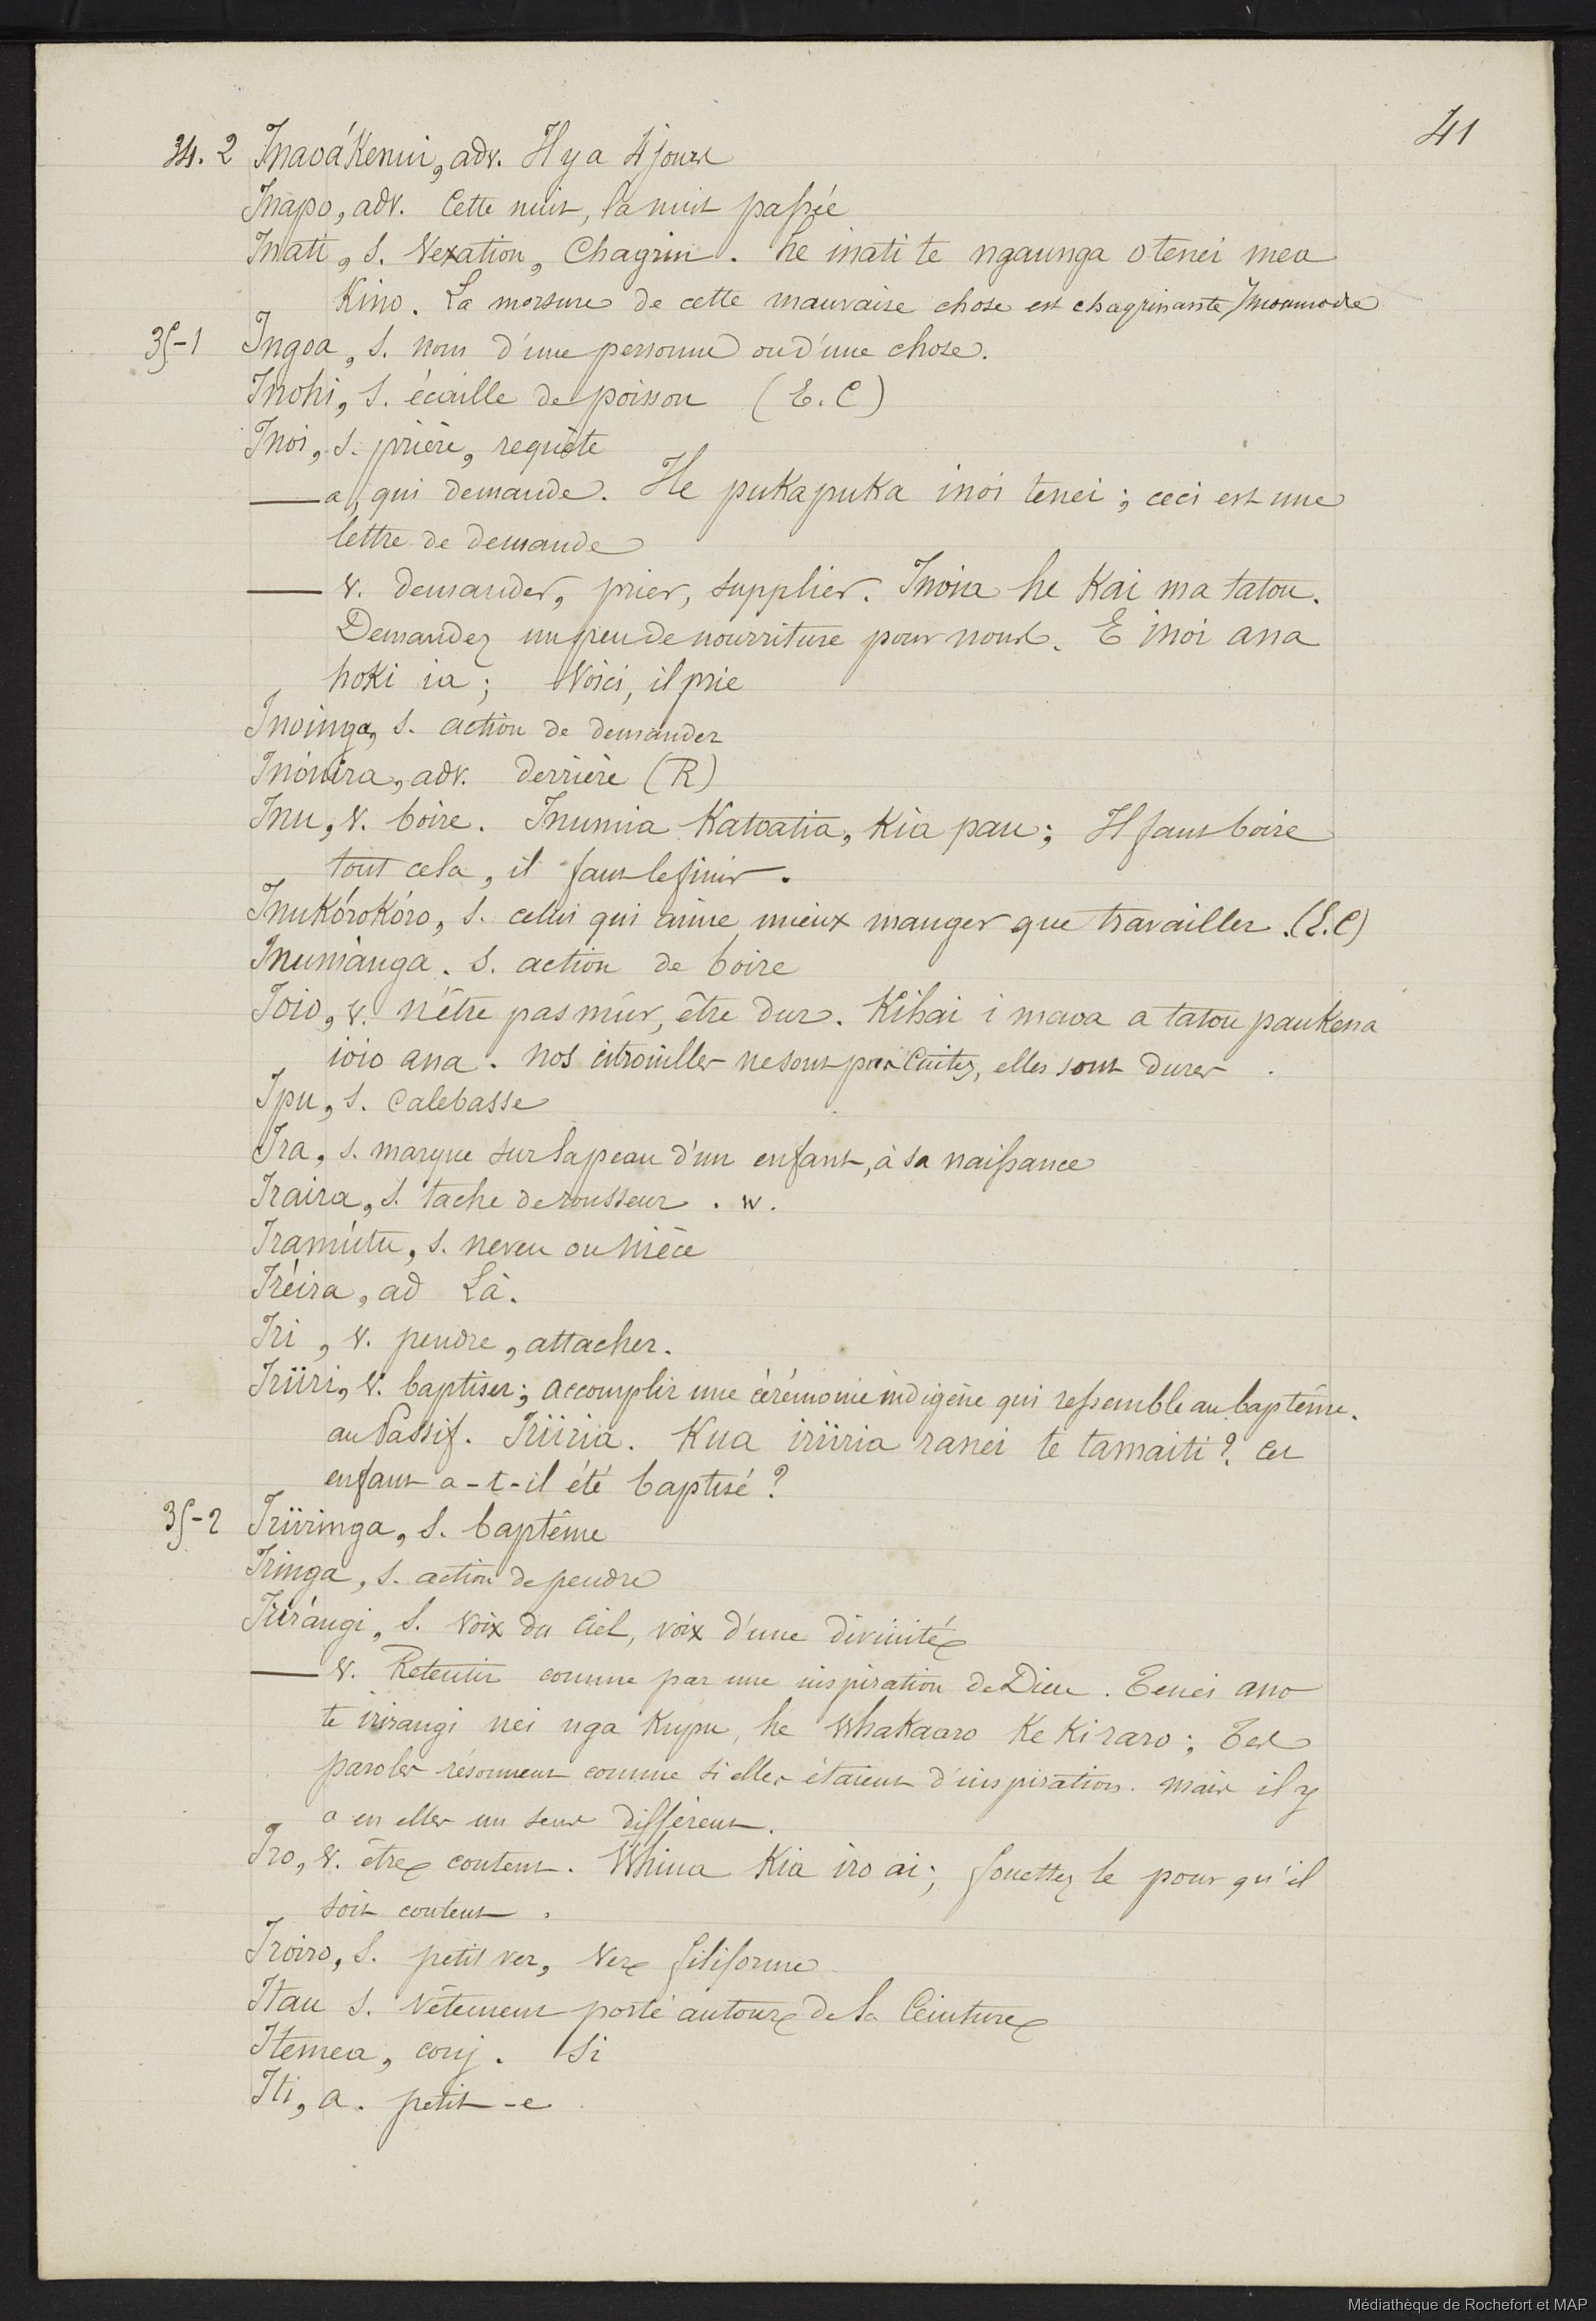 41
34. 2 Inaoákenui, adv. Il y a 4 jours
Inapo, adv. Cette nuit, la nuit passée
Inati, s. Vexation, Chagrin. he inati te ngaunga o tenei mea
Kino. La morsure de cette mauvaise chose est chagrinante
35-1 Ingoa, s. nom d'une personne ou d'une chose.
Inohi, s. écaille de poisson (E. C)
Inoi, s. prière, requête
— a, qui demande. He pukapuka inoi tenei; ceci est une
lettre de demande
— v. demander, prier, supplier. Inoia he Kai ma tatou.
Demandez un peu de nourriture pour nous. E inoi ana
hoki ia; Voici, il prie
Inoinga, s. action de demander
Inoníra, adv. derrière (R)
Inu, v. boire. Inumia Katoatia, Kia pau; Il faut boire
tout cela, il faut le finir.
Inukórokóro, s. celui qui aime mieux manger que travailler. (E.C)
Inumánga. s. action de boire
Ioio, v. n'être pas mûr, être dur. Kihai i maoa a tatou paukena
ioio ana. nos citrouilles ne sont pas Cuites, elles sont dures.
Ipu, s. Calebasse
Ira, s. marque sur la peau d'un enfant, à sa naissance
Iraira, s. tache de rousseur. w.
Iramútu, s. neveu ou nièce
Iréira, ad Là.
Iri, v. pendre, attacher.
Iriiri, v. baptiser; accomplir une cérémonie indigène qui ressemble au baptême.
au Passif. Iriiria. Kua iriiria ranei te tamaiti? Cet
enfant a-t-il été baptisé?
35-2 Iriiringa, s. baptême
Iringa, s. action de pendre
Irirángi, s. Voix du Ciel, voix d'une divinité
— v. Retentir comme par une inspiration de Dieu. Tenei ano
te irirangi nei nga Kupu, he Whakaaro Ke Ki raro; Ces
paroles résonnent comme si elles étaient d'inspiration. mais il y
a en elles un sens différent.
Iro, v. être content. Whiua Kia iro ai; fouettez le pour qu'il
soit content.
Iroiro, s. petit ver, Ver filiforme
Itau s. Vêtement porté autour de la Ceinture
Itemea, conj. Si
Iti, a. petit-e
Médiathèque de Rochefort et MAP